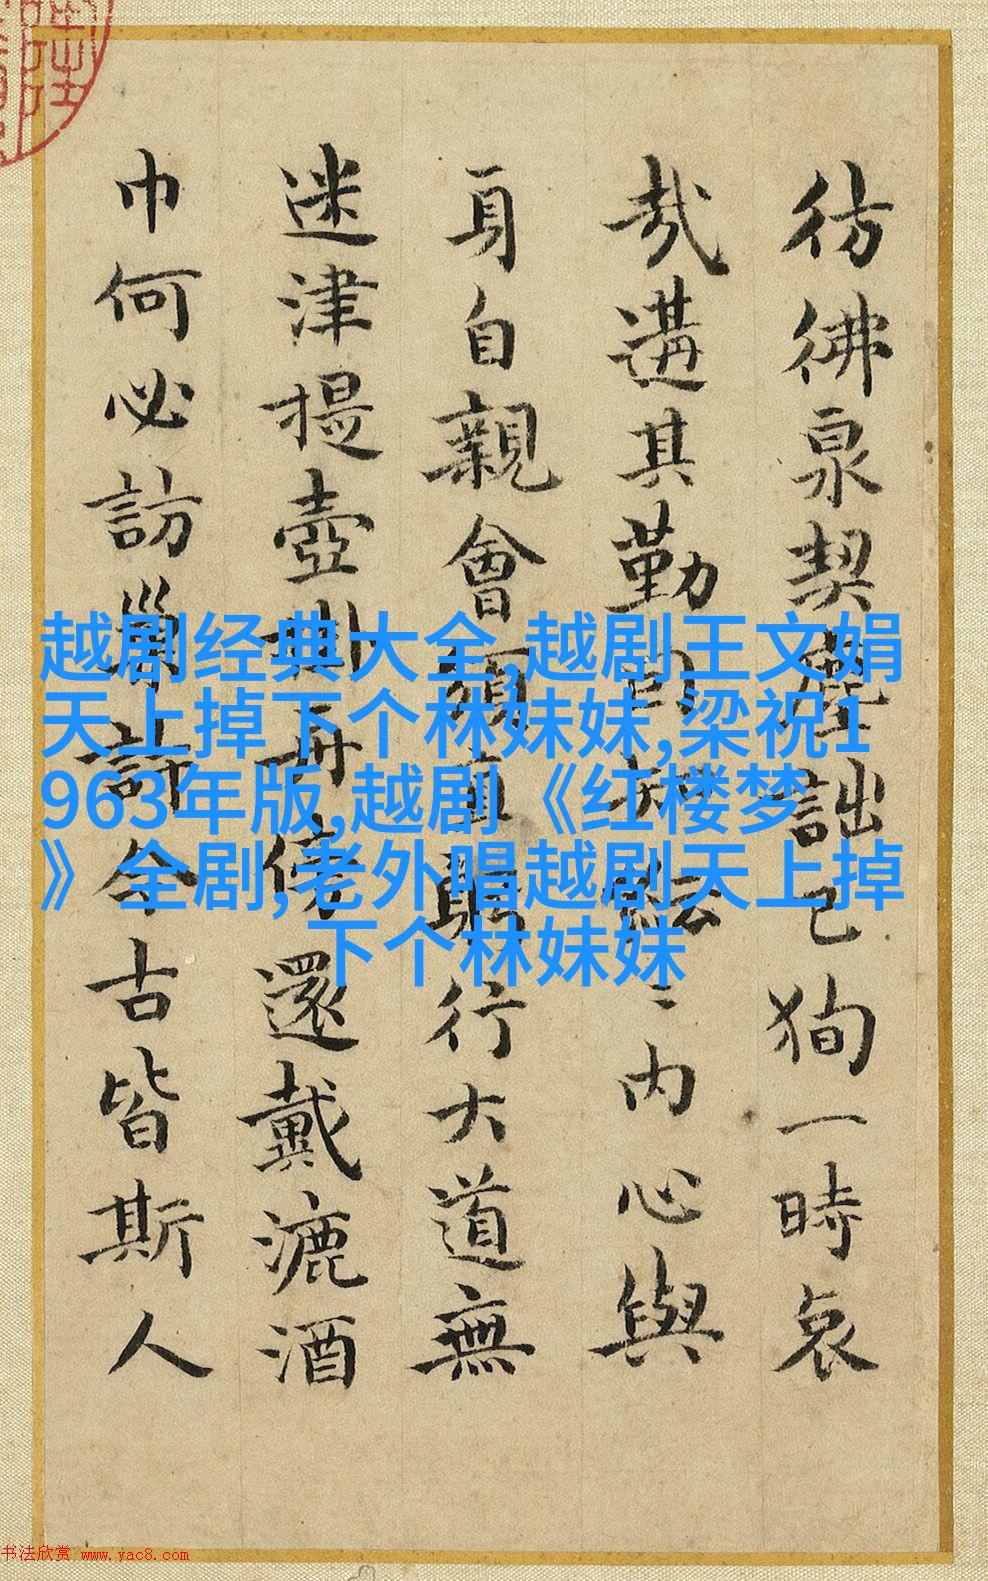 彷彿泉契詘己狥一時哀
哉遘其勤内心與
身自親會須直行大道無
迷津提壺傍還戴漉酒
巾何必訪巢許今古皆斯人
越剧经典大全,越剧王文娟
天上掉下个林妹妹,梁祝1
963年版,越剧《红楼梦
》全剧,老外唱越剧天上掉
下个林妹妹
书法欣赏 www.yac8.com